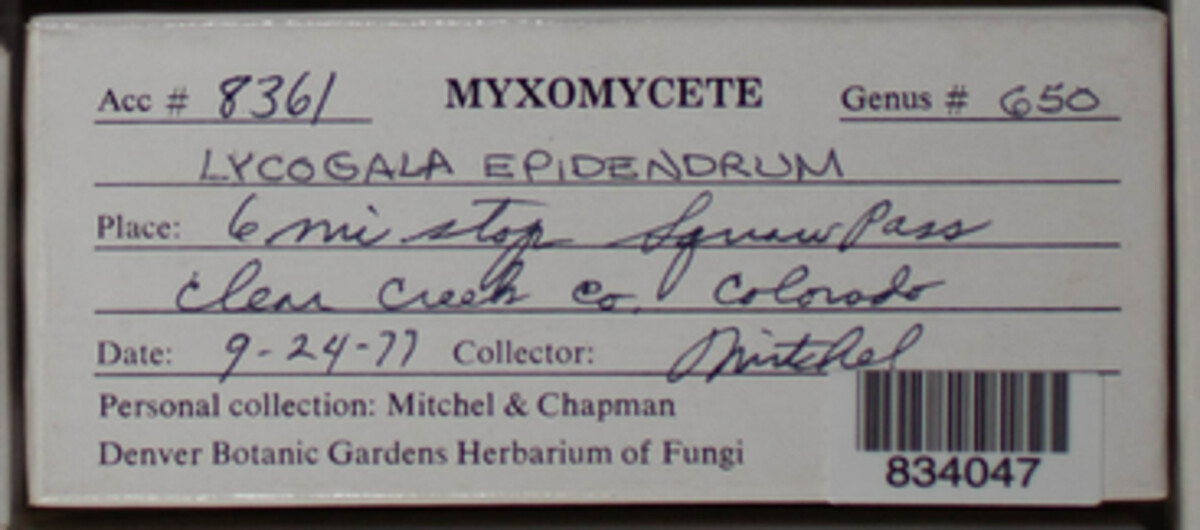 Acc # 8361 MYXOMYCETE Genus # 650
LYCOGALA EPIDENDRUM
Place: 6 mi stop Squaw Pass
Clear Creek Co. Colorado
Date: 9-24-77 Collector: Mitchel
Personal collection: Mitchel & Chapman
Denver Botanic Gardens Herbarium of Fungi
834047